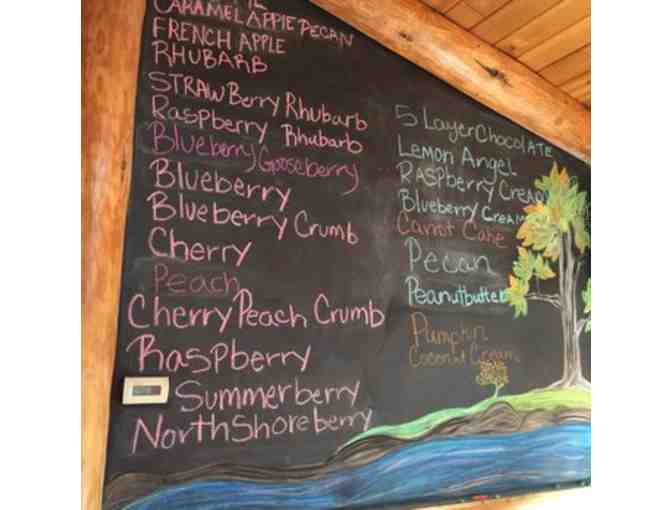 CARAMEL APPLE PECAN
FRENCH APPLE
RHUBARB
STRAWBerry Rhubarb
Raspberry Rhubarb
Blueberry Gooseberry
Blueberry
Blueberry Crumb
Cherry
Peach
Cherry Peach Crumb
Raspberry
Summerberry
NorthShoreberry
5 Layer ChocolATE
Lemon Angel
RASPberry Cream
Blueberry Cream
Carrot Cake
Pecan
Peanutbutter
Pumpkin
Coconut Cream